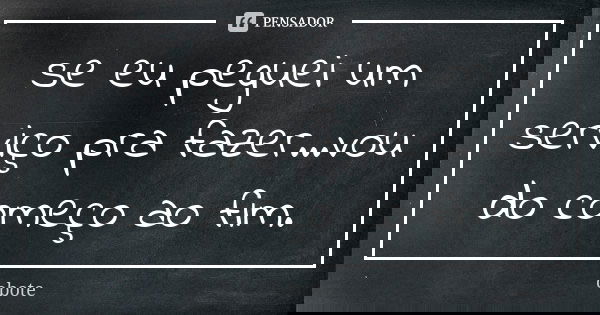 PENSADOR
se eu peguei um
serviço pra fazer...vou
do começo ao fim.